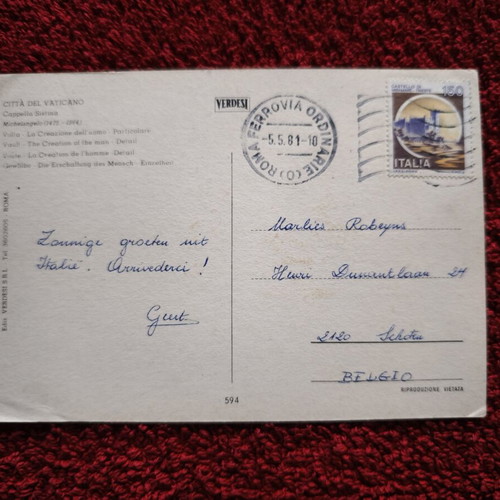 CITTÀ DEL VATICANO
Cappella Sistina
Michelangelo (1475 - 1564)
Volta - La Creazione dell'uomo - Particolare
Vault - The Creation of the man - Detail
Voûte - La Création de l'homme - Détail
Gewölbe - Die Erschaffung des Menschen - Einzelheit
VERDESI
ROMA FERROVIA ORDINARIE (O)
-5.5.81-10
150
ITALIA
Zonnige groeten uit
Italië. Arrivederci!
Geert
Marlies Robeyns
Henri Dumontlaan 24
2120 Schoten
BELGIO
RIPRODUZIONE VIETATA
594
Ediz. VERDESI S.R.L. Tel. ROMA